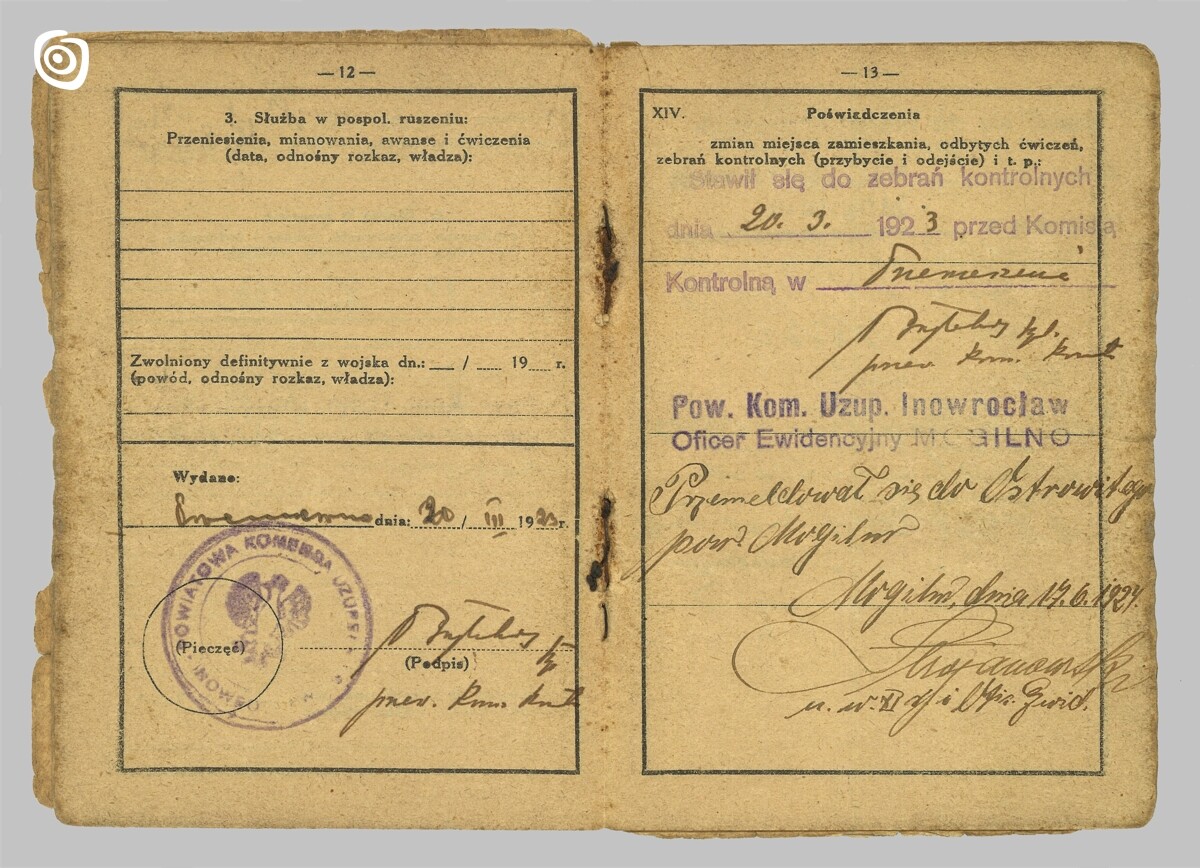 — 12 —
3. Służba w pospol. ruszeniu:
Przeniesienia, mianowania, awanse i ćwiczenia
(data, odnośny rozkaz, władza):
Zwolniony definitywnie z wojska dn.: / 19 r.
(powód, odnośny rozkaz, władza):
Wydano:
dnia: 20 / III 1923 r.
POWIATOWA KOMENDA UZUPEŁ
(Pieczęć)
(Podpis)
— 13 —
XIV. Poświadczenia
zmian miejsca zamieszkania, odbytych ćwiczeń,
zebrań kontrolnych (przybycie i odejście) i t. p.:
Stawił się do zebrań kontrolnych
dnia 20. 3. 1923 przed Komisją
Kontrolną w
Pow. Kom. Uzup. Inowrocław
Oficer Ewidencyjny MOGILNO
Przemeldował się do Ostrowitego
pow. Mogilno
Mogilno, dnia 17.6.1927.